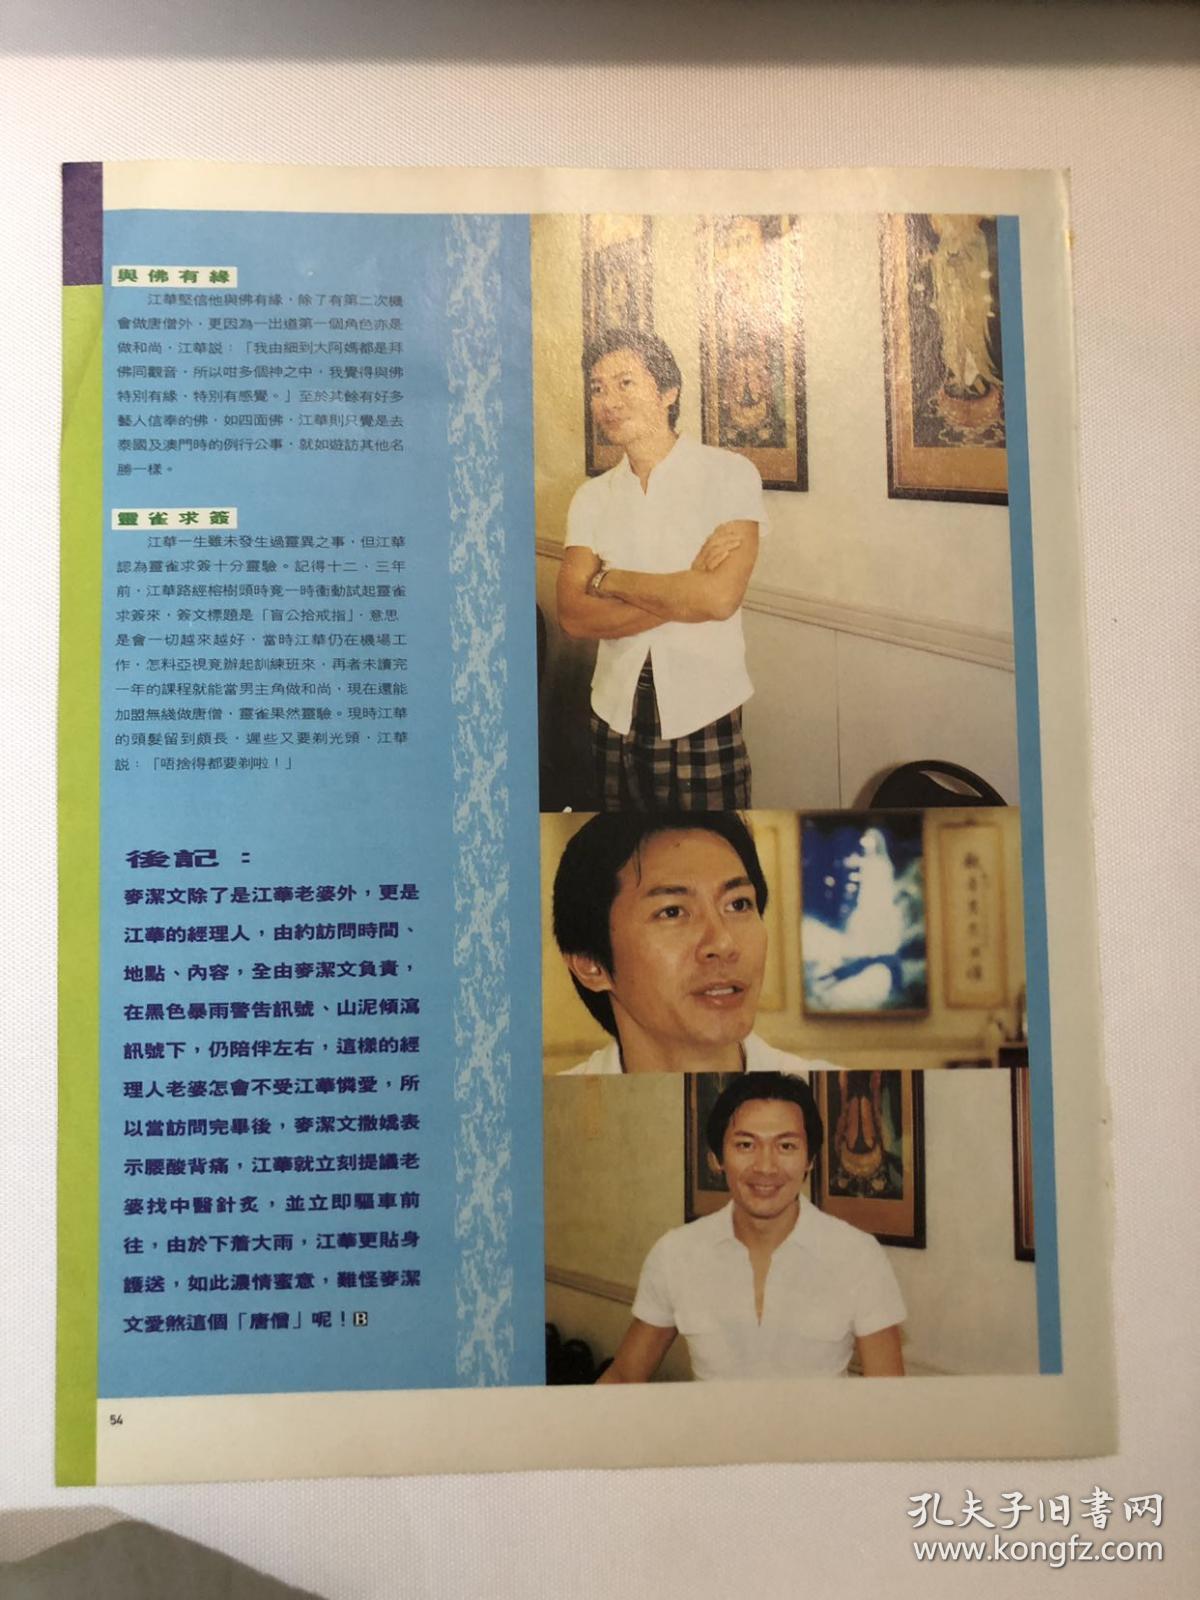 與佛有緣
江華堅信他與佛有緣，除了有第二次機
會做唐僧外，更因為一出道第一個角色亦是
做和尚，江華説：「我由細到大阿媽都是拜
佛同觀音，所以咁多個神之中，我覺得與佛
特別有緣，特別有感覺。」至於其餘有好多
藝人信奉的佛，如四面佛，江華則只覺是去
泰國及澳門時的例行公事，就如遊訪其他名
勝一樣。
靈雀求簽
江華一生雖未發生過靈異之事，但江華
認為靈雀求簽十分靈驗。記得十二、三年
前，江華路經榕樹頭時竟一時衝動試起靈雀
求簽來，簽文標題是「盲公拾戒指」，意思
是會一切越來越好，當時江華仍在機場工
作，怎料亞視竟辦起訓練班來，再者未讀完
一年的課程就能當男主角做和尚，現在還能
加盟無綫做唐僧，靈雀果然靈驗。現時江華
的頭髮留到頗長，遲些又要剃光頭，江華
説：「唔捨得都要剃啦！」
後記：
麥潔文除了是江華老婆外，更是
江華的經理人，由約訪問時間、
地點、內容，全由麥潔文負責，
在黑色暴雨警告訊號、山泥傾瀉
訊號下，仍陪伴左右，這樣的經
理人老婆怎會不受江華憐愛，所
以當訪問完畢後，麥潔文撒嬌表
示腰酸背痛，江華就立刻提議老
婆找中醫針炙，並立即驅車前
往，由於下着大雨，江華更貼身
護送，如此濃情蜜意，難怪麥潔
文愛煞這個「唐僧」呢！B
54
孔夫子旧书网
www.kongfz.com